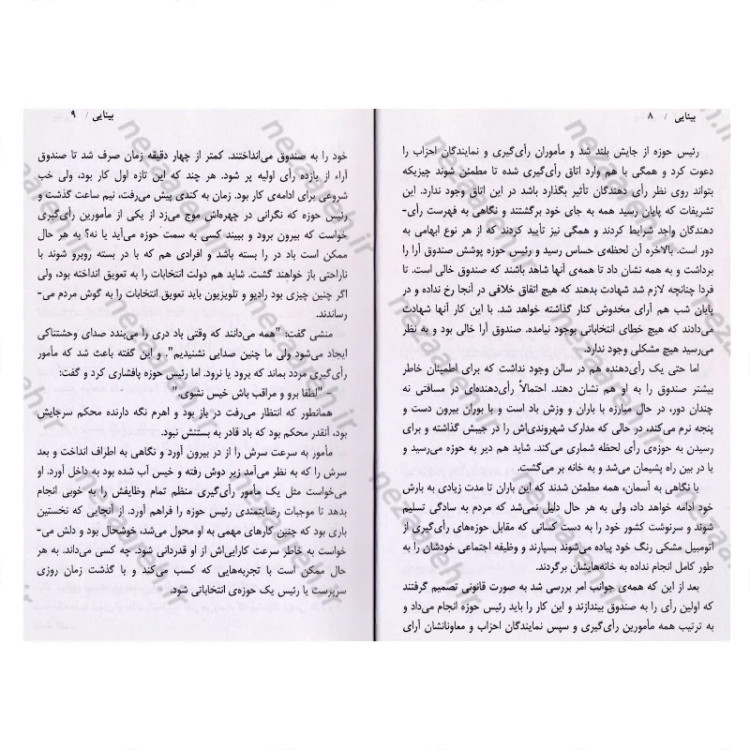 بینایی / ۸
رئیس حوزه از جایش بلند شد و مأموران رأی‌گیری و نمایندگان احزاب را
دعوت کرد و همگی با هم وارد اتاق رأی‌گیری شده تا مطمئن شوند چیزیکه
بتواند روی نظر رأی دهندگان تأثیر بگذارد باشد در این اتاق وجود ندارد. این
تشریفات که پایان رسید همه به جای خود برگشتند و نگاهی به فهرست رأی-
دهندگان واجد شرایط کردند و همگی نیز تأیید کردند که از هر نوع ابهامی به
دور است. بالاخره آن لحظه‌ی حساس رسید و رئیس حوزه پوشش صندوق آرا را
برداشت و به همه نشان داد تا همه‌ی آنها شاهد باشند که صندوق خالی است. تا
فردا چنانچه لازم شد شهادت بدهند که هیچ اتفاق خلافی در آنجا رخ نداده و در
پایان شب هم آرای مخدوش کنار گذاشته خواهد شد. با این کار آنها شهادت
می‌دادند که هیچ خطای انتخاباتی بوجود نیامده. صندوق آرا خالی بود و به نظر
می‌رسید هیچ مشکلی وجود ندارد.
اما حتی یک رأی‌دهنده هم در سالن وجود نداشت که برای اطمینان خاطر
بیشتر صندوق را به او هم نشان دهند. احتمالاً رأی‌دهنده‌ای در مسافتی نه
چندان دور، در حال مبارزه با باران و وزش باد است و با بوران بیرون دست و
پنجه نرم می‌کند، در حالی که مدارک شهروندی‌اش را در جیبش گذاشته و برای
رسیدن به حوزه‌ی رأی لحظه شماری می‌کند. شاید هم دیر به حوزه می‌رسید و
یا در بین راه پشیمان می‌شد و به خانه بر می‌گشت.
با نگاهی به آسمان، همه مطمئن شدند که این باران تا مدت زیادی به بارش
خود ادامه خواهد داد، ولی به هر حال دلیل نمی‌شد که مردم به سادگی تسلیم
شوند و سرنوشت کشور خود را به دست کسانی که مقابل حوزه‌های رأی‌گیری از
اتومبیل مشکی رنگ خود پیاده می‌شوند بسپارند و وظیفه اجتماعی خودشان را به
طور کامل انجام نداده به خانه‌هایشان برگردند.
بعد از این که همه‌ی جوانب امر بررسی شد به صورت قانونی تصمیم گرفتند
که اولین رأی را به صندوق بیندازند و این کار را باید رئیس حوزه انجام می‌داد و
به ترتیب همه مأمورین رأی‌گیری و سپس نمایندگان احزاب و معاونانشان آرای
بینایی / ۹
خود را به صندوق می‌انداختند. کمتر از چهار دقیقه زمان صرف شد تا صندوق
آراء از یازده رأی اولیه پر شود. هر چند که این تازه اول کار بود، ولی خب
شروعی برای ادامه‌ی کار بود. زمان به کندی پیش می‌رفت، نیم ساعت گذشت و
رئیس حوزه که نگرانی در چهره‌اش موج می‌زد از یکی از مأمورین رأی‌گیری
خواست که بیرون برود و ببیند کسی به سمت حوزه می‌آید یا نه؟ به هر حال
ممکن است باد در را بسته باشد و افرادی هم که با در بسته روبرو شوند با
ناراحتی باز خواهند گشت. شاید هم دولت انتخابات را به تعویق انداخته بود، ولی
اگر چنین چیزی بود رادیو و تلویزیون باید تعویق انتخابات را به گوش مردم می-
رساندند.
منشی گفت: "همه می‌دانند که وقتی باد دری را می‌بندد صدای وحشتناکی
ایجاد می‌شود ولی ما چنین صدایی نشنیدیم"، و این گفته باعث شد که مأمور
رأی‌گیری مردد بماند که برود یا نرود. اما رئیس حوزه پافشاری کرد و گفت:
"لطفاً برو و مراقب باش خیس نشوی."
همانطور که انتظار می‌رفت در باز بود و اهرم نگه دارنده محکم سرجایش
بود، آنقدر محکم بود که باد قادر به بستنش نبود.
مأمور به سرعت سرش را از در بیرون آورد و نگاهی به اطراف انداخت و بعد
سرش را که به نظر می‌آمد زیر دوش رفته و خیس آب شده بود به داخل آورد. او
می‌خواست مثل یک مأمور رأی‌گیری منظم تمام وظایفش را به خوبی انجام
بدهد تا موجبات رضایتمندی رئیس حوزه را فراهم آورد. از آنجایی که نخستین
باری بود که چنین کارهای مهمی به او محول می‌شد، خوشحال بود و دلش می-
خواست به خاطر سرعت کارایی‌اش از او قدردانی شود. چه کسی می‌داند. به هر
حال ممکن است با تجربه‌هایی که کسب می‌کند و با گذشت زمان روزی
سرپرست یا رئیس یک حوزه‌ی انتخاباتی شود.
nezaaneh.ir